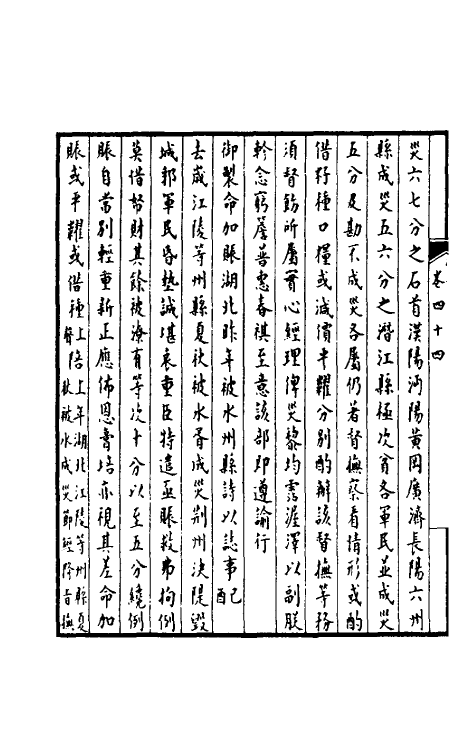 卷四十四
災六七分之石首漢陽沔陽黃岡廣濟長陽六州
縣成災五六分之潛江縣極次貧各軍民並成災
五分及勘不成災各屬仍著督撫察看情形或酌
借籽種口糧或減價平糶分別酌辦該督撫等務
須督飭所屬實心經理俾災黎均霑渥澤以副朕
軫念窮簷普惠春祺至意該部即遵諭行
御製命加賑湖北昨年被水州縣詩以誌事己酉
去歲江陵等州縣夏秋被水胥成災荆州決隄毀
城郭軍民昏墊誠堪哀重臣特遣亟賑救弗拘例
莫惜帑財其餘被潦有等次十分以至五分繞例
賑自當別輕重新正應佈恩膏培亦視其差命加
賑或平糶或借種上陪上年湖北江陵等州縣夏
秋被水成災節經降旨撫